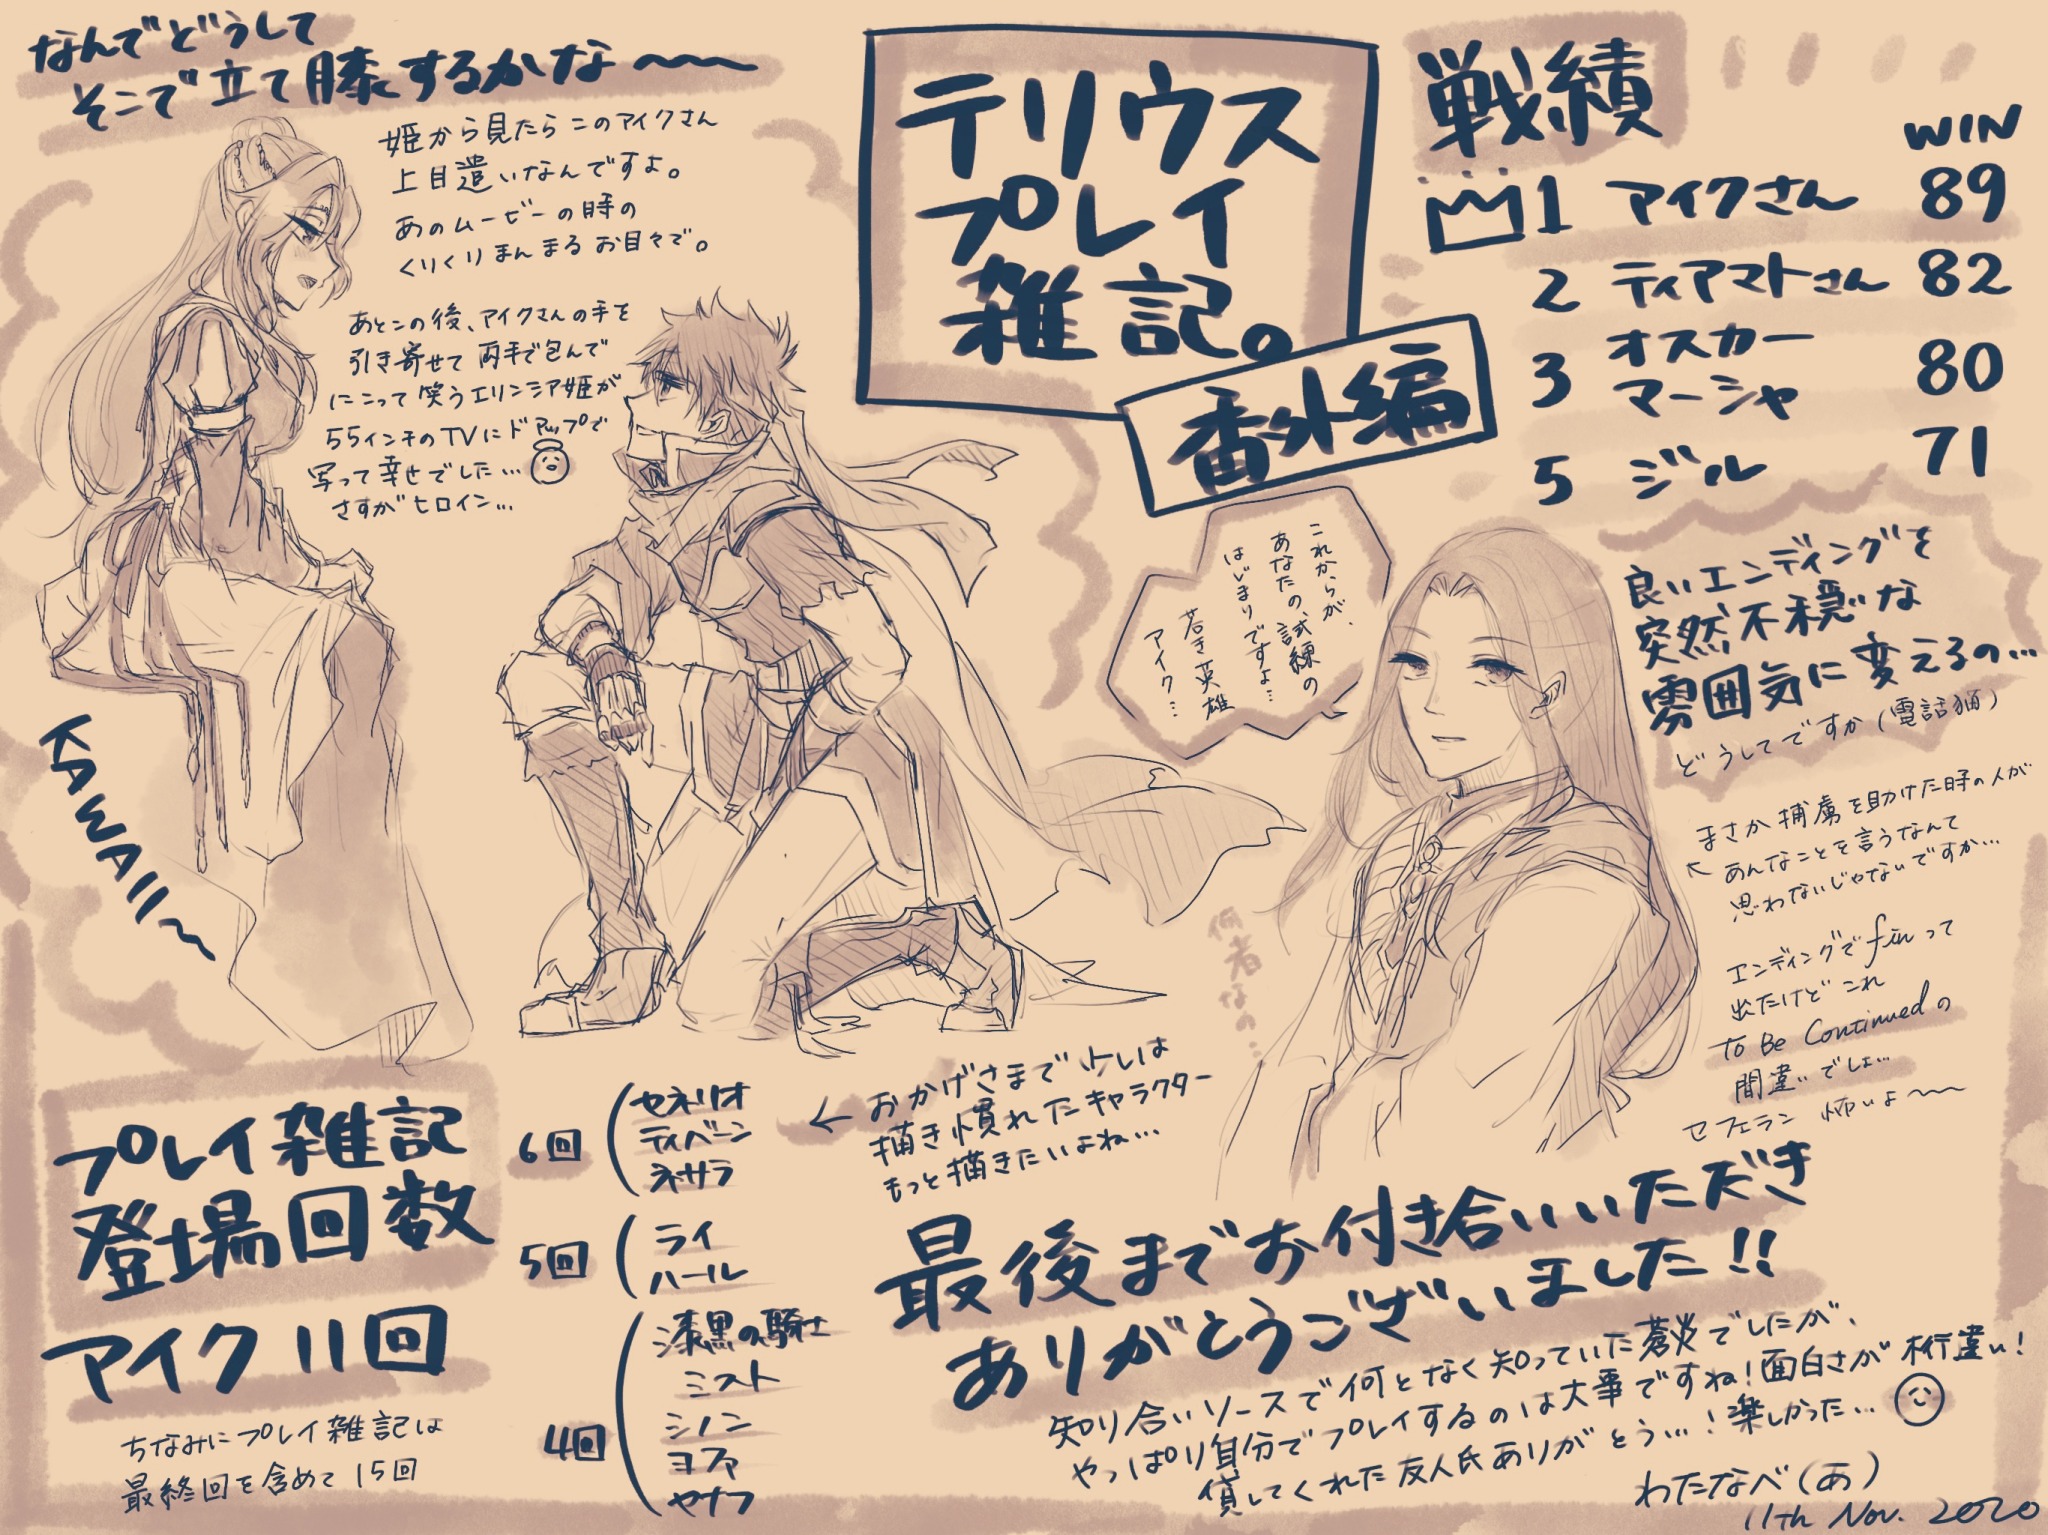 なんでどうして
そこで立て膝するかな〜
姫から見たらこのアイクさん
上目遣いなんですよ。
あのムービーの時の
くりくりまんまるお目々で。
あとこの後、アイクさんの手を
引き寄せて両手で包んで
にこって笑うエリンシア姫が
55インチのTVにドアップで
写って幸せでした…
さすがヒロイン…
KAWAII〜
テリウス
プレイ
雑記。
番外編
戦績
WIN
1 アイクさん 89
2 ティアマトさん 82
3 オスカー
マーシャ 80
5 ジル 71
これからが、
あなたの、試練の
はじまりですよ…
若き英雄
アイク…
何者なの…
良いエンディングを
突然不穏な
雰囲気に変えるの…
どうしてですか(電話猫)
まさか捕虜を助けた時の人が
あんなことを言うなんて
思わないじゃないですか…
エンディングでfinって
出たけどこれ
To Be Continuedの
間違いでしょ…
セフェラン 怖いよ〜
プレイ雑記
登場回数
アイク 11回
ちなみにプレイ雑記は
最終回を含めて15回
6回
セネリオ
ティバーン
ネサラ
←おかげさまで少しは
描き慣れたキャラクター
もっと描きたいよね…
5回
ライ
ハール
4回
漆黒の騎士
ミスト
シノン
ヨファ
ヤナフ
最後までお付き合いいただき
ありがとうございました!!
知り合いソースで何となく知っていた蒼炎でしたが、
やっぱり自分でプレイするのは大事ですね!面白さが桁違い!
貸してくれた友人氏ありがとう…!楽しかった…
わたなべ(あ)
11th Nov. 2020